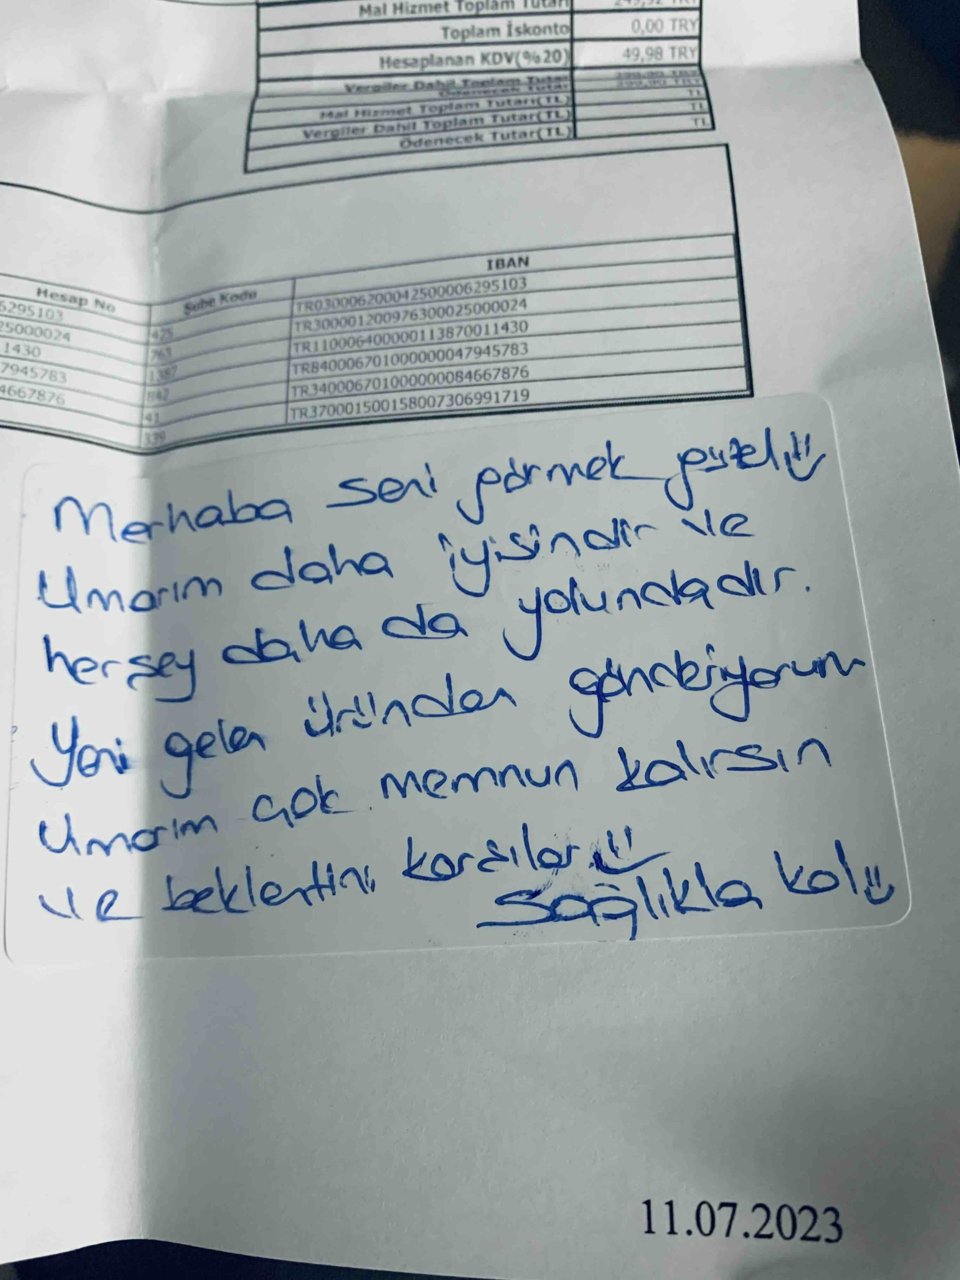 Mal Hizmet Toplam Tutarı
Toplam İskonto 0,00 TRY
Hesaplanan KDV(%20) 49,98 TRY
Vergiler Dahil Toplam Tutar
Ödenecek Tutar
Mal Hizmet Toplam Tutarı(TL) TL
Vergiler Dahil Toplam Tutar(TL) TL
Ödenecek Tutar(TL) TL
Hesap No Şube Kodu IBAN
6295103 425 TR030006200042500006295103
25000024 763 TR300001200976300025000024
1430 1387 TR110006400000113870011430
7945783 847 TR840006701000000047945783
4667876 41 TR340006701000000084667876
339 TR370001500158007306991719
Merhaba seni görmek güzel
Umarım daha iyisindir ve
herşey daha da yolundadır.
Yeni gelen üründen gönderiyorum
Umarım çok memnun kalırsın
ve beklentini karşılar
Sağlıkla kal
11.07.2023